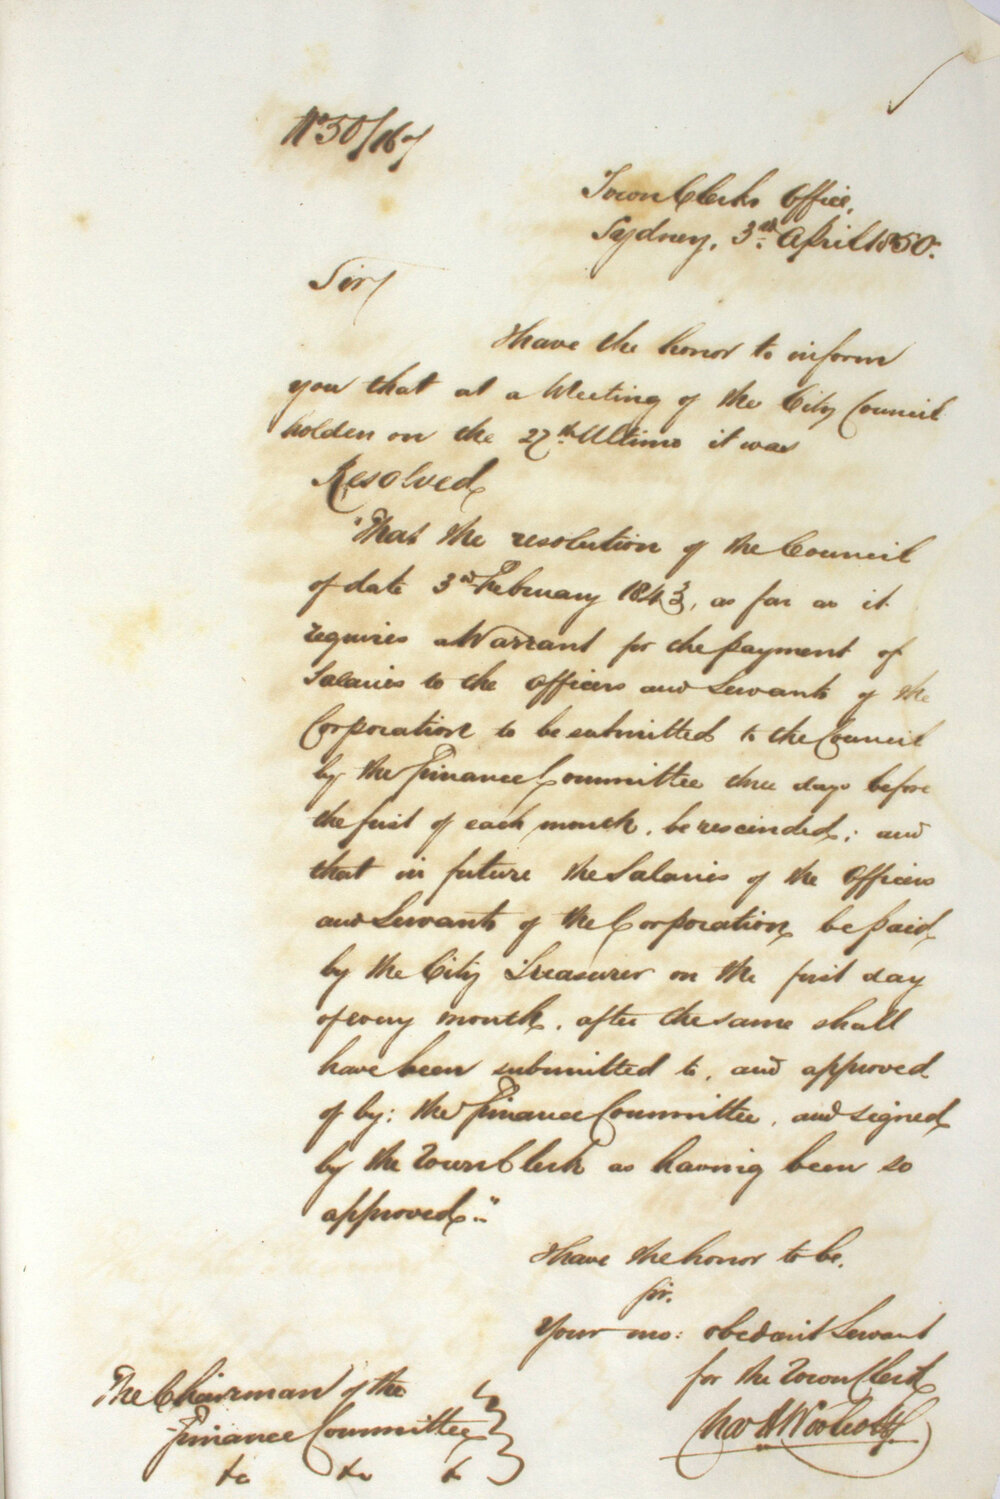 No 50/167
Town Clerks Office,
Sydney, 3rd April 1850.
Sir/
I have the honor to inform
you that at a Meeting of the City Council
holden on the 27th Ultimo it was
Resolved
"That the resolution of the Council
of date 3rd February 1843, as far as it
requires a Warrant for the payment of
Salaries to the Officers and Servants of the
Corporation to be submitted to the Council
by the Finance Committee three days before
the first of each month, be rescinded; and
that in future the Salaries of the Officers
and Servants of the Corporation be paid
by the City Treasurer on the first day
of every month, after the same shall
have been submitted to, and approved
of by: the Finance Committee, and signed
by the Town Clerk as having been so
approved."
I have the honor to be,
Sir,
Your mo: obedient Servant
for the Town Clerk
Chas H Woolcott
The Chairman of the
Finance Committee
&c &c &c